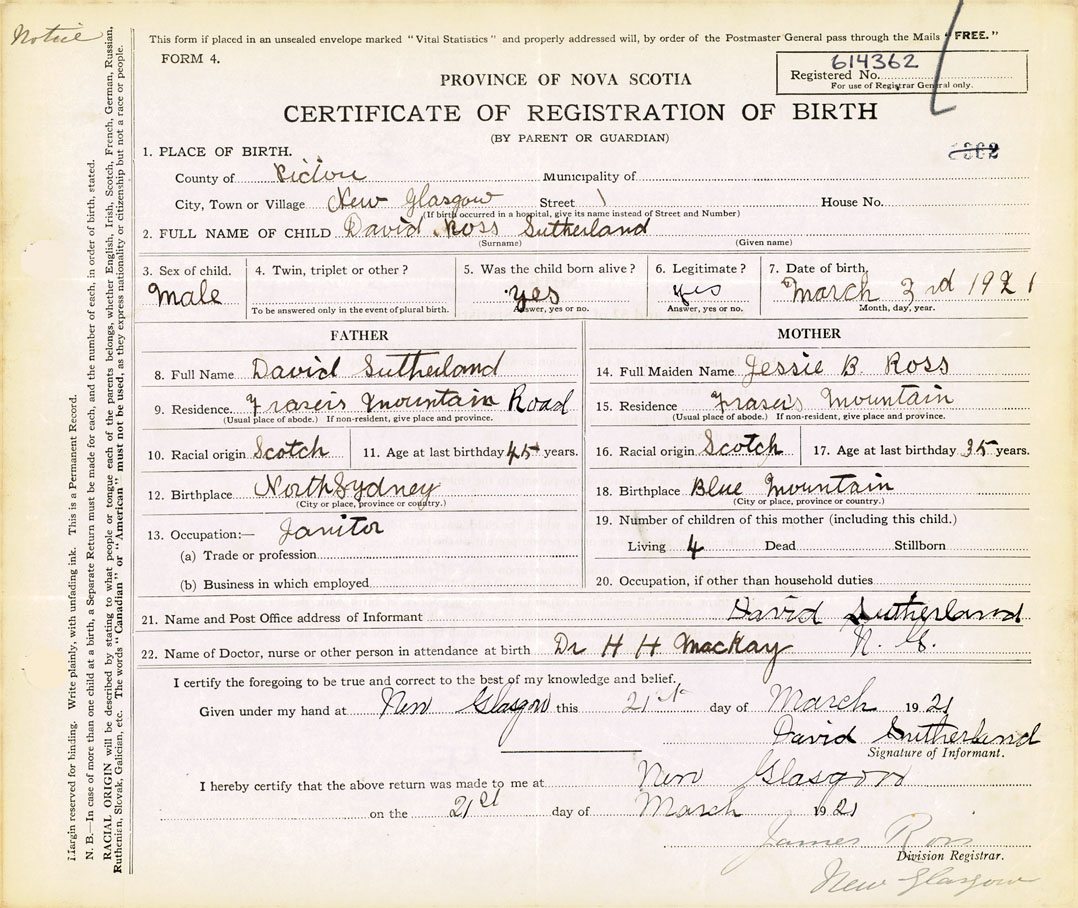 Notice
This form if placed in an unsealed envelope marked "Vital Statistics" and properly addressed will, by order of the Postmaster General pass through the Mails "FREE."
FORM 4.
614362
Registered No.
For use of Registrar General only.
PROVINCE OF NOVA SCOTIA
CERTIFICATE OF REGISTRATION OF BIRTH
(BY PARENT OR GUARDIAN)
1. PLACE OF BIRTH.
County of Pictou Municipality of
City, Town or Village New Glasgow Street \ House No.
(If birth occurred in a hospital, give its name instead of Street and Number)
2. FULL NAME OF CHILD David Ross Sutherland
(Surname) (Given name)
3. Sex of child. 4. Twin, triplet or other? 5. Was the child born alive? 6. Legitimate? 7. Date of birth,
Male yes yes March 3rd 1921
To be answered only in the event of plural birth. Answer, yes or no. Answer, yes or no. Month, day, year.
FATHER
8. Full Name David Sutherland
9. Residence Frasers Mountain Road
(Usual place of abode.) If non-resident, give place and province.
10. Racial origin Scotch 11. Age at last birthday 45 years.
12. Birthplace North Sydney
(City or place, province or country.)
13. Occupation:— Janitor
(a) Trade or profession
(b) Business in which employed
MOTHER
14. Full Maiden Name Jessie B. Ross
15. Residence Fraser's Mountain
(Usual place of abode.) If non-resident, give place and province.
16. Racial origin Scotch 17. Age at last birthday 35 years.
18. Birthplace Blue Mountain
(City or place, province or country.)
19. Number of children of this mother (including this child.)
Living 4 Dead Stillborn
20. Occupation, if other than household duties
21. Name and Post Office address of Informant David Sutherland
22. Name of Doctor, nurse or other person in attendance at birth Dr H H MacKay N. G.
I certify the foregoing to be true and correct to the best of my knowledge and belief.
Given under my hand at New Glasgow this 21st day of March 1921
David Sutherland
Signature of Informant.
I hereby certify that the above return was made to me at New Glasgow
on the 21st day of March 1921
James Ross
Division Registrar.
New Glasgow
Margin reserved for binding. Write plainly, with unfading ink. This is a Permanent Record.
N. B.—In case of more than one child at a birth, a Separate Return must be made for each, and the number of each, in order of birth, stated.
RACIAL ORIGIN will be described by stating to what people or tongue each of the parents belongs, whether English, Irish, Scotch, French, German, Russian,
Ruthenian, Slovak, Galician, etc. The words "Canadian" or "American" must not be used, as they express nationality or citizenship but not a race or people.